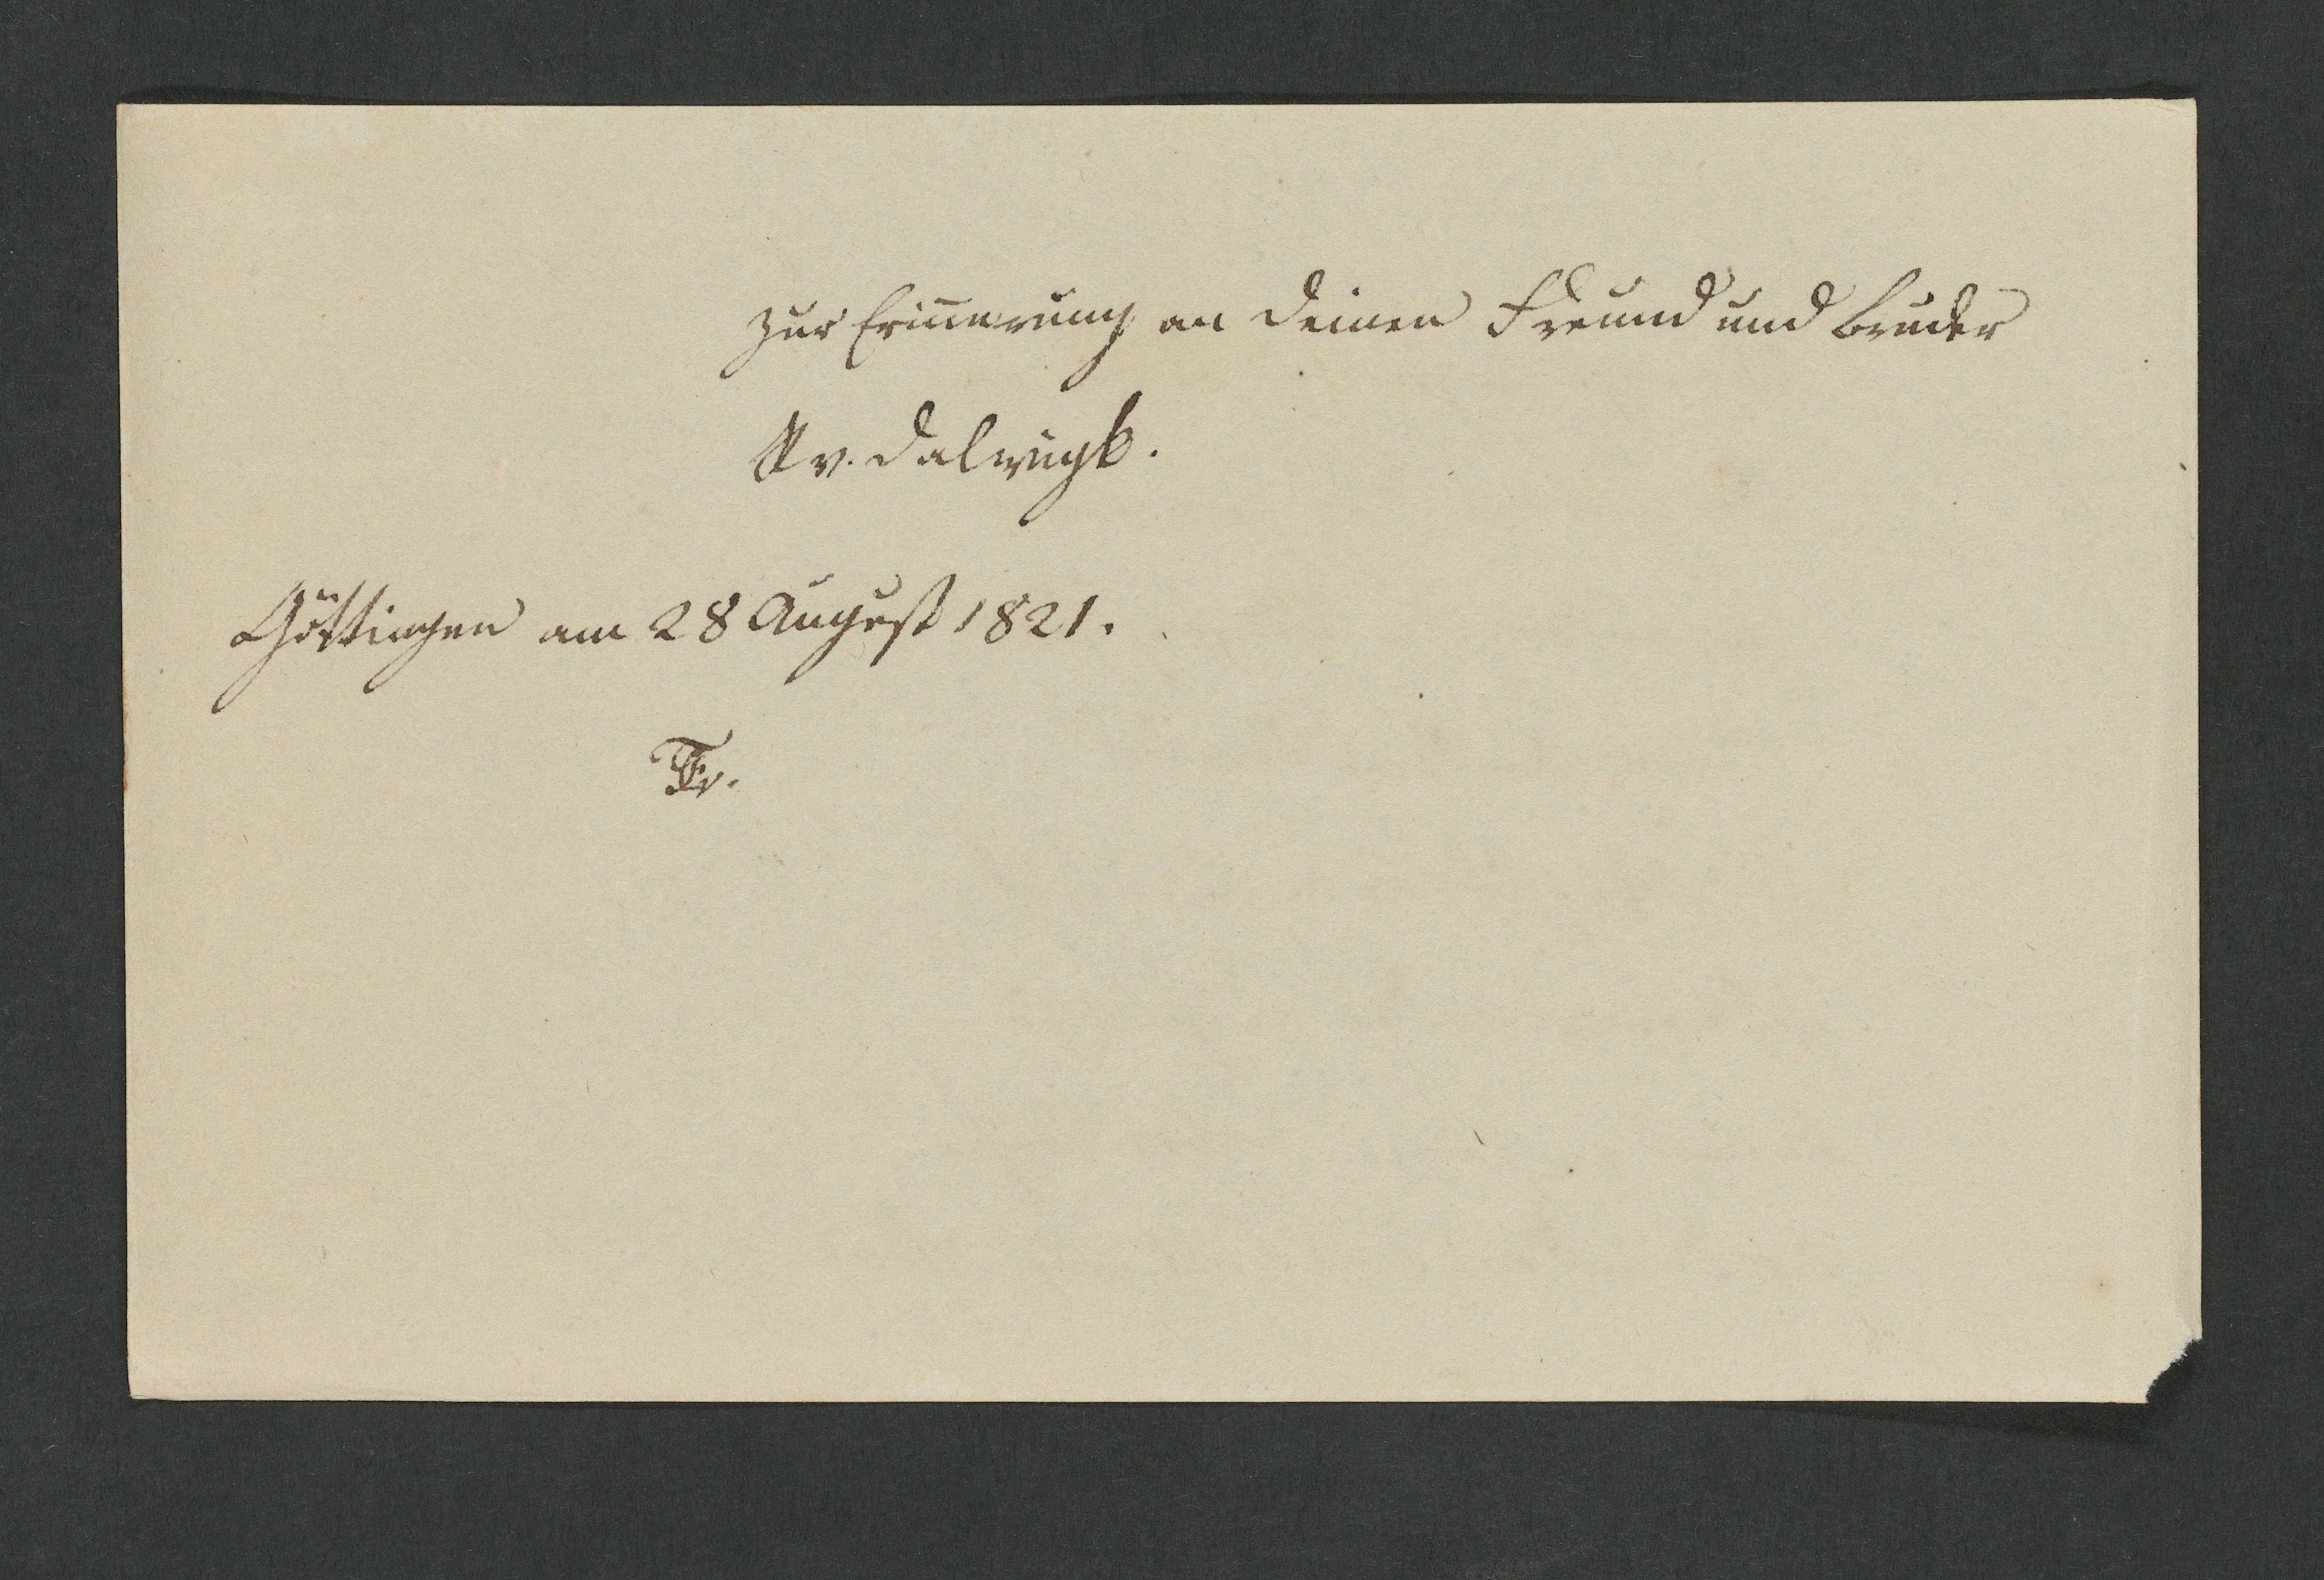 Zur Erinnerung an Deinen Freund und Bruder
v. Dalwigk.
Göttingen am 28 August 1821.